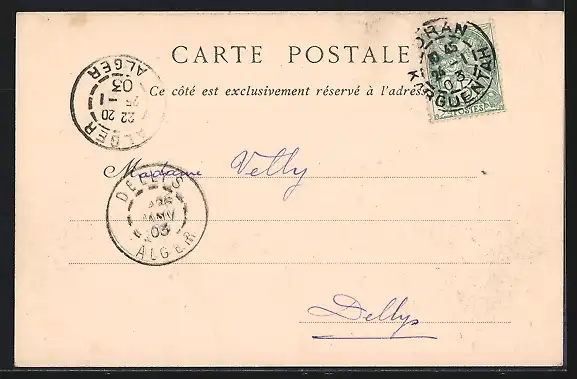 CARTE POSTALE
Ce côté est exclusivement réservé à l'adresse
ORAN
KARGUENTAH
03
POSTES
ALGER
22 20
25 1
03
ALGER
Madame Velly
DELLYS
JANV
03
ALGER
Dellys